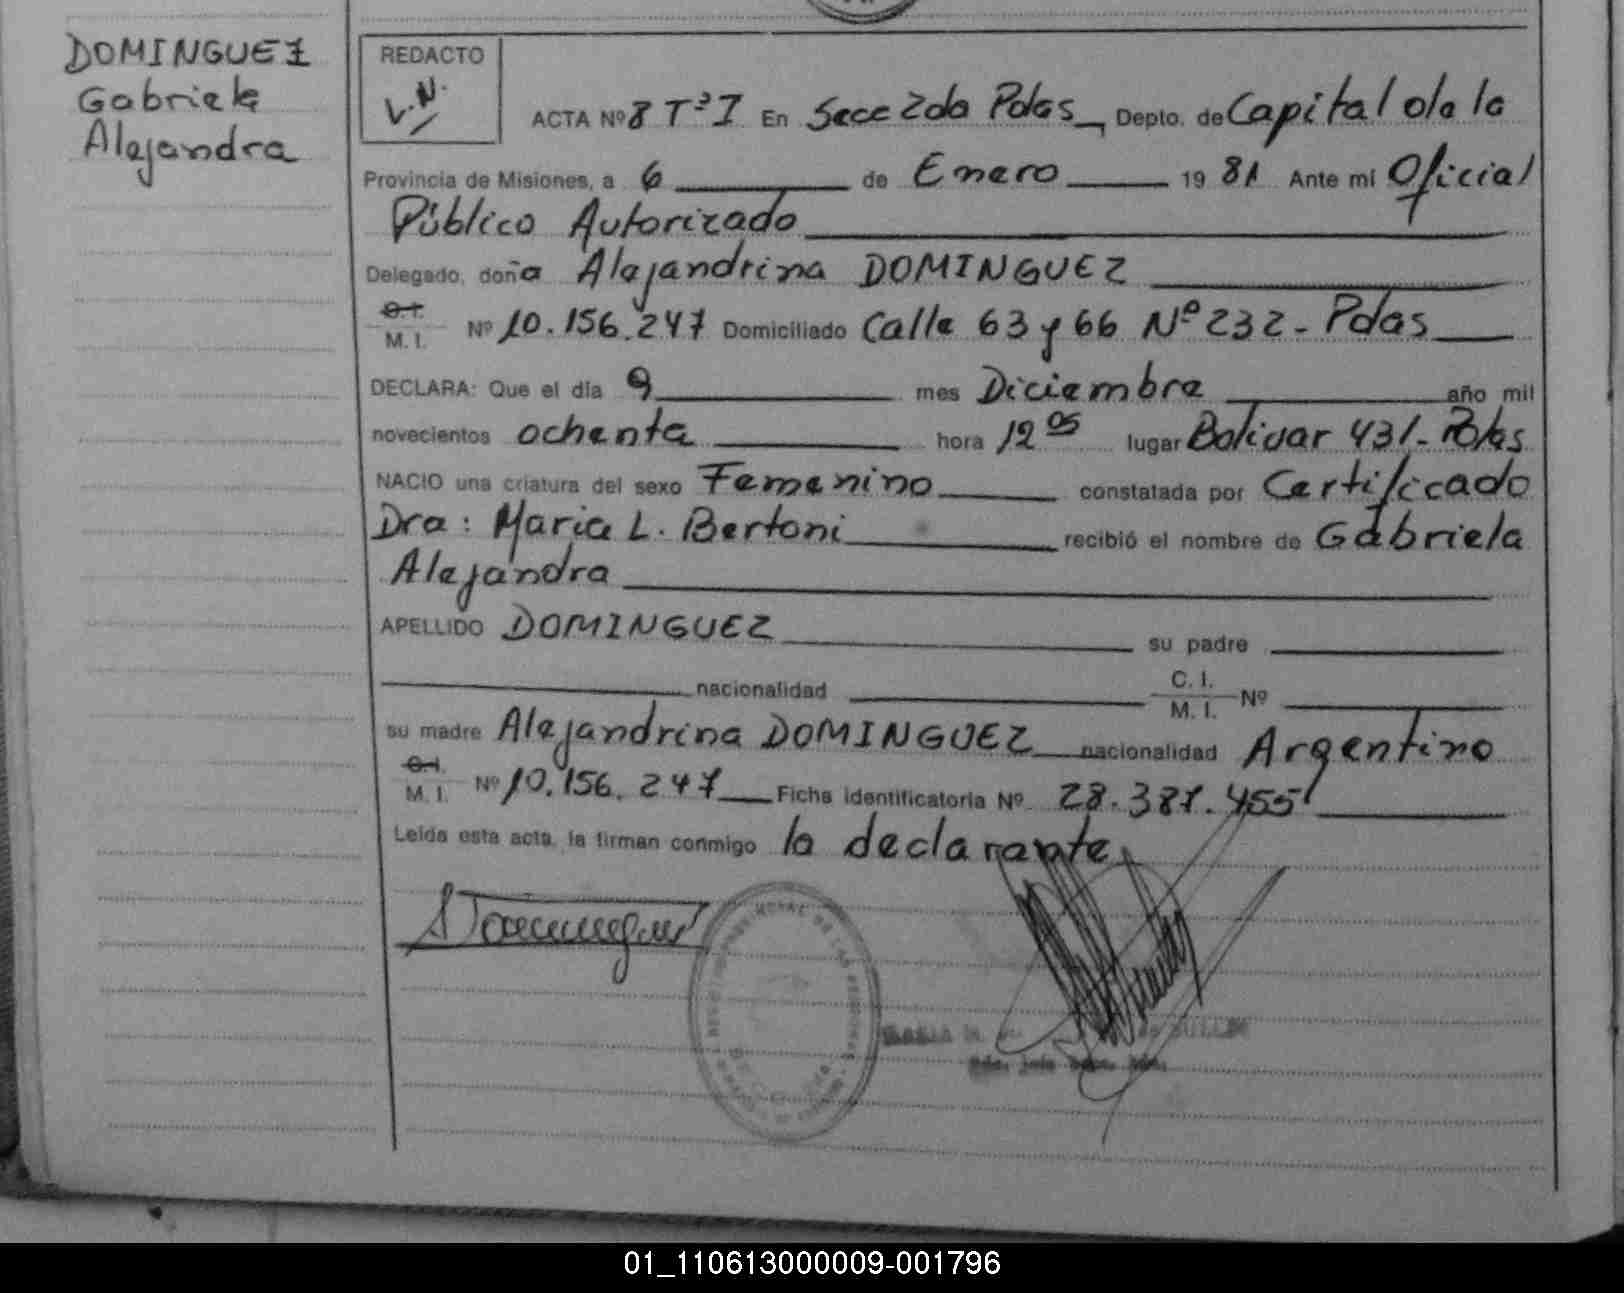 DOMINGUEZ
Gabriela
Alejandra
REDACTO
V.N.
ACTA Nº 8 Tº I En Secc 2da Pdas Depto. de Capital de la
Provincia de Misiones, a 6 de Enero 19 81 Ante mi Oficial
Público Autorizado
Delegado, doña Alejandrina DOMINGUEZ
C.I.
M.I. Nº 10.156.247 Domiciliado Calle 63 y 66 Nº 232 - Pdas
DECLARA: Que el día 9 mes Diciembre año mil
novecientos ochenta hora 12 05 lugar Bolivar 431 - Pdas
NACIO una criatura del sexo Femenino constatada por Certificado
Dra: Maria L. Bertoni recibió el nombre de Gabriela
Alejandra
APELLIDO DOMINGUEZ su padre
nacionalidad C.I. M.I. Nº
su madre Alejandrina DOMINGUEZ nacionalidad Argentina
C.I.
M.I. Nº 10.156.247 Ficha identificatoria Nº 28.387.455
Leída esta acta, la firman conmigo la declarante
01_110613000009-001796